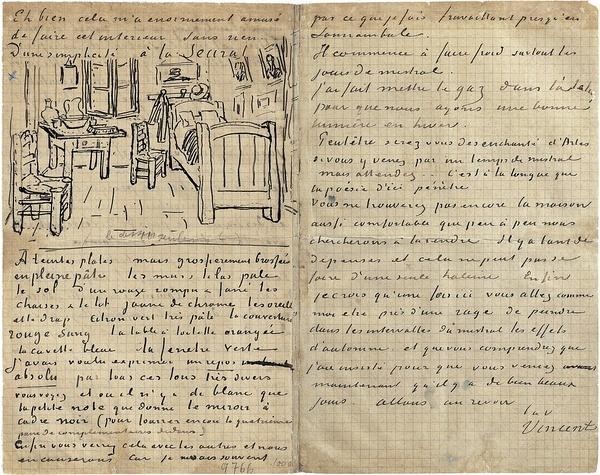 Eh bien cela m'a enormement amusé
de faire cet interieur sans rien
D'une simplicité à la Seurat
à teintes plates mais grossierement brossées
en pleine pâte les murs lilas pale
le sol d'un rouge rompu & fané les
chaises & le lit jaune de chrome les oreillers
et le drap citron vert très pâle la couverture
rouge sang la table à toilette orangée
la cuvette bleue la fenetre verte
J'avais voulu exprimer un repos
absolu par tous ces tons très divers
vous voyez et où il n'y a de blanc que
la petite note que donne le miroir à
cadre noir (pour fourrer encore la quatrième
paire de complementaires dedans)
Enfin vous verrez cela avec les autres et nous
en causerons car je ne sais souvent
9766
pas ce que je fais travaillant presqu'en
somnambule.
Il commence à faire froid surtout les
jours de mistral.
J'ai fait mettre le gaz dans l'atelier
pour que nous ayons une bonne
lumière en hiver.
Peutêtre serez vous desenchanté d'Arles
si vous y venez par un temps de mistral
mais attendez.. C'est à la longue que
la poésie d'ici penètre
Vous ne trouverez pas encore la maison
aussi comfortable que peu à peu nous
chercherons à la rendre Il y a tant de
depenses et cela ne peut pas se
faire d'une seule haleine Enfin
je crois qu'une fois ici vous allez comme
moi etre pris d'une rage de peindre
dans les intervalles du mistral les effets
d'automne et que vous comprendrez que
j'ai insisté pour que vous veniez
maintenant qu'il y a de bien beaux
jours allons au revoir
t. à v.
Vincent